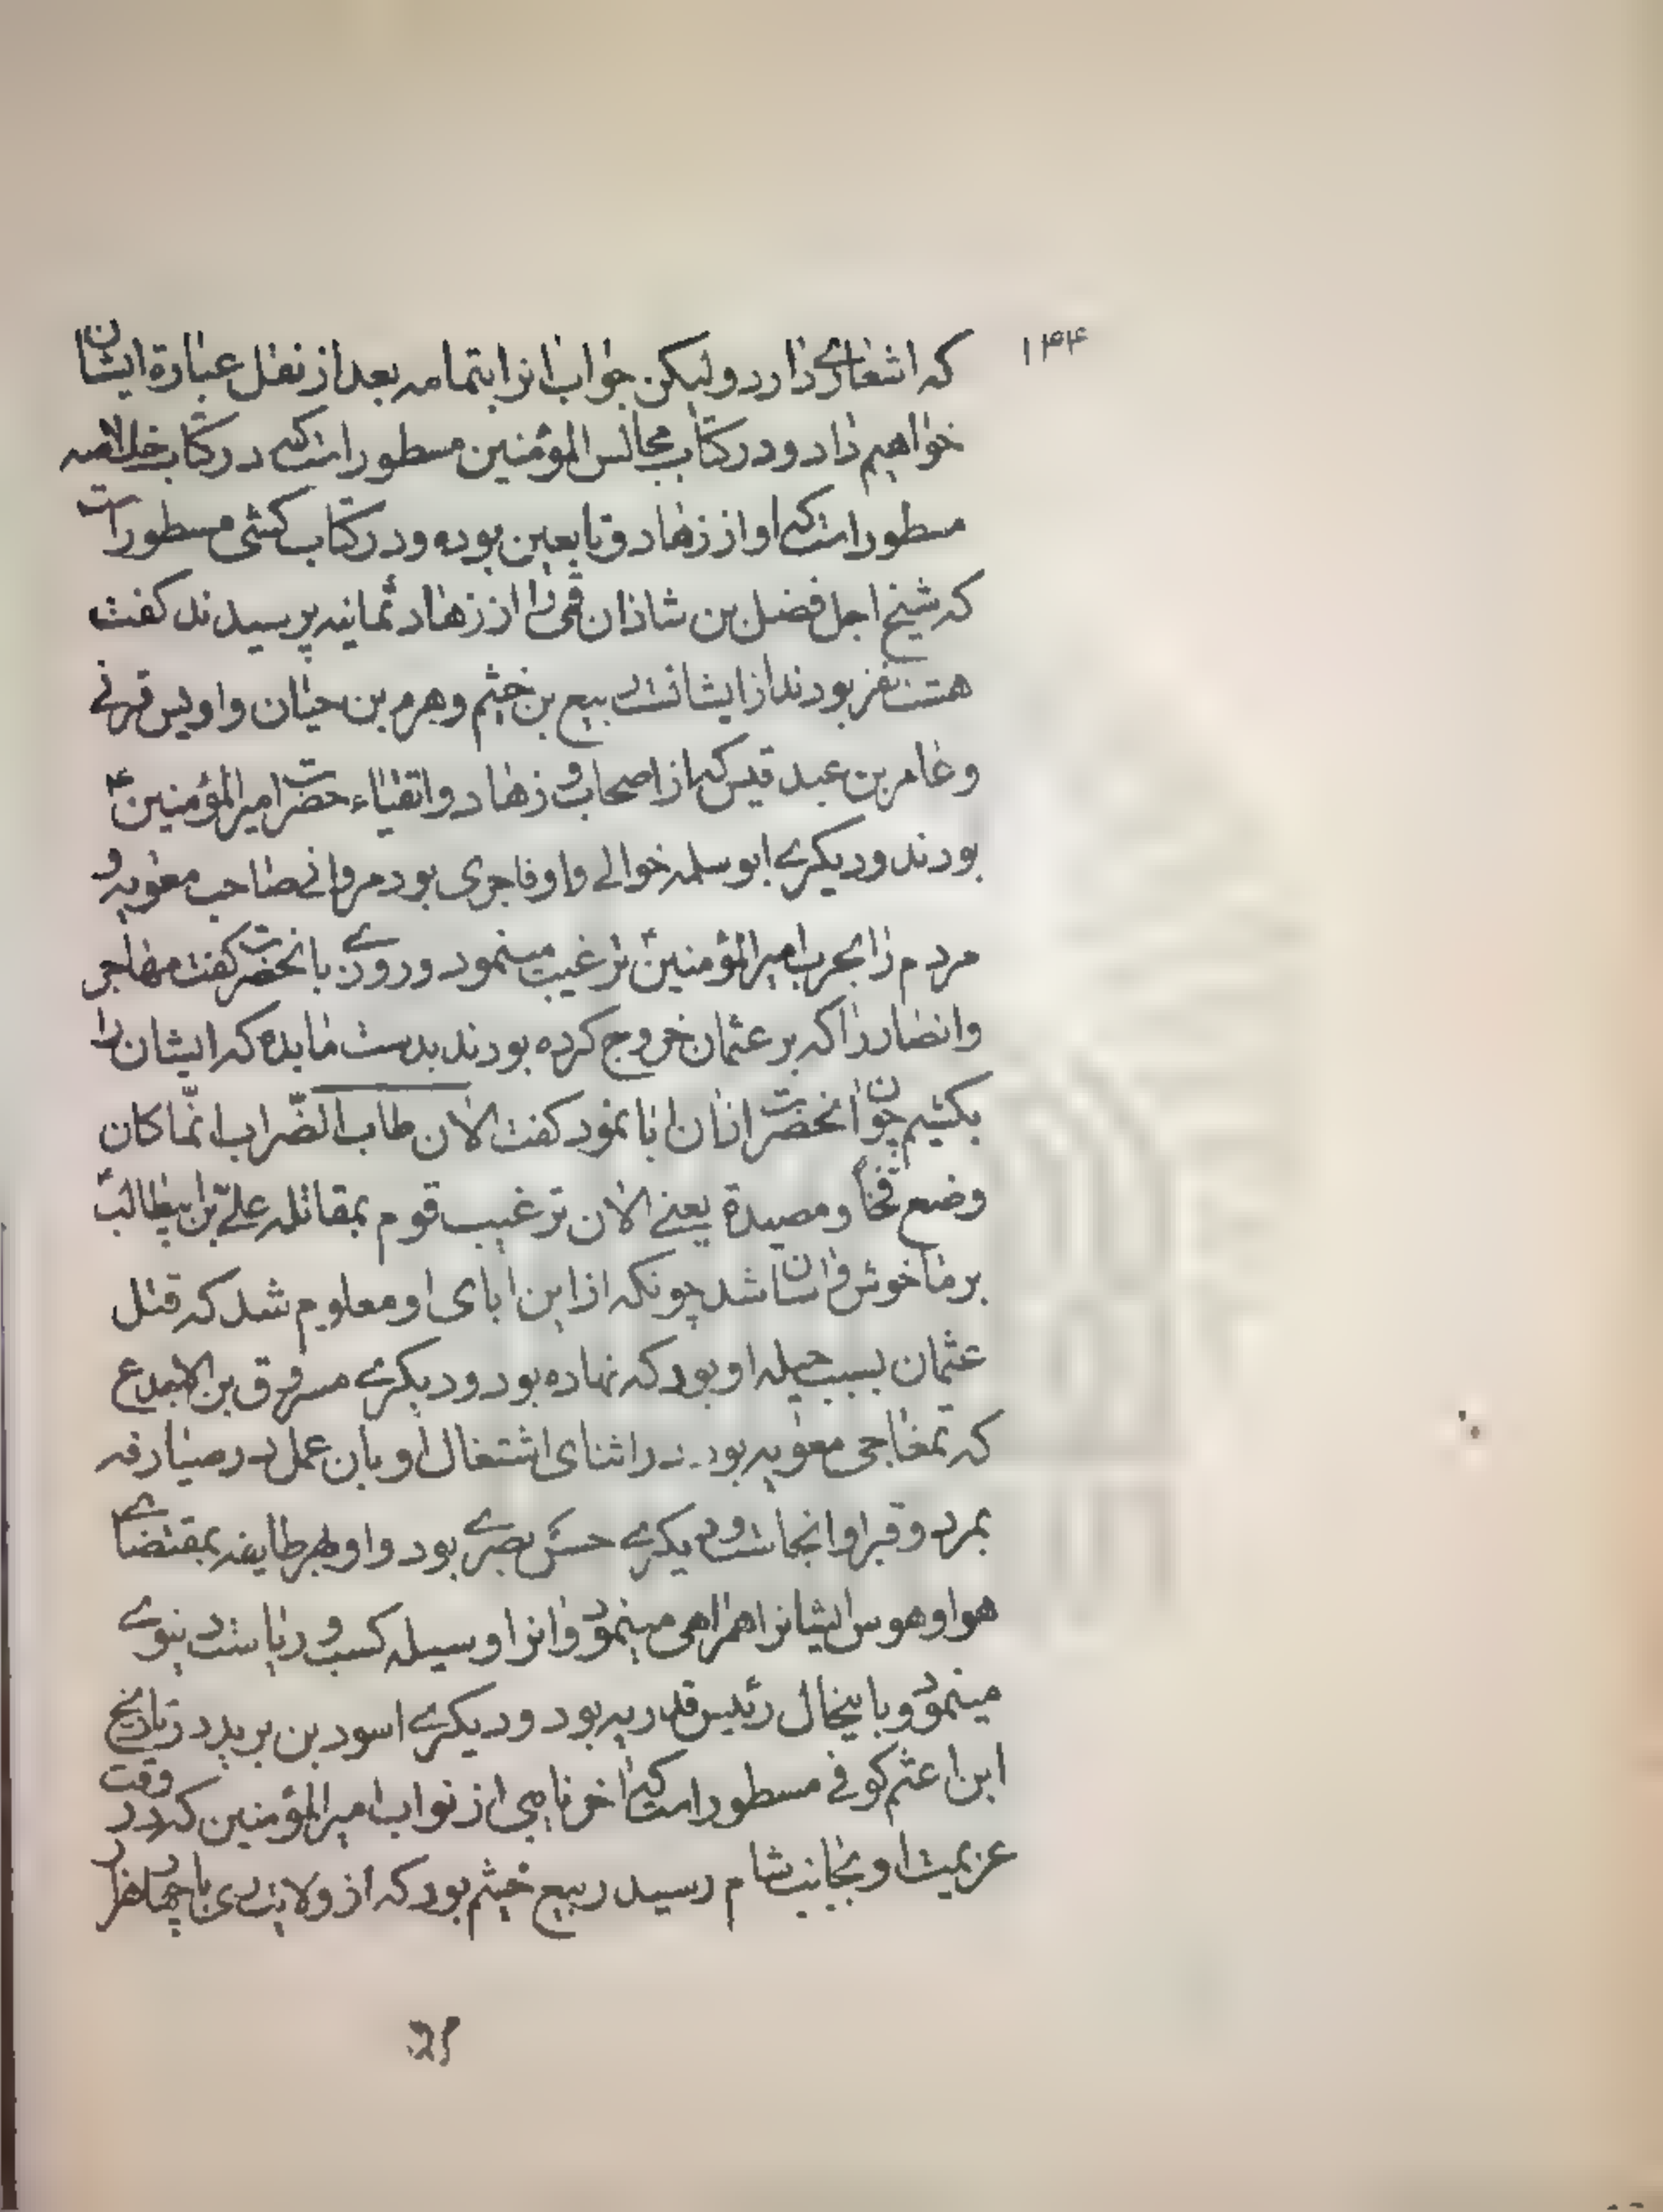 ۱۴۴
که اشعاری دارد ولیکن جواب انرا بتمامه بعد از نقل عبارة ایشان
خواهیم داد و در کتاب مجالس المؤمنین مسطور است که در کتاب خلاصه
مسطور است که او از زهاد و تابعین بوده و در کتاب کشی مسطور است
که شیخ اجل فضل بن شاذان قمی را از زهاد ثمانیه پرسیدند کفت
هشت نفر بودند از ایشانست ربیع بن خثیم و هرم بن حیان و اویس قرنی
و عامر بن عبد قیس که از اصحاب و زهاد و اتقیاء حضرت امیر المؤمنین ع
بودند و دیکری ابو سلمه خوالی و او فاجری بود مروانی صاحب معویه و
مردم را بحرب امیر المؤمنین ترغیب مینمود و روزی بانحضرت کفت مهاجر
و انصار را که بر عثمان خروج کرده بودند بدست ما بده که ایشان را
بکشیم چون انحضرت ازان ابا نمود کفت الان طاب الضراب انما کان
وضع فخا و مصیدة یعنی الان ترغیب قوم بمقاتله علی بن ابیطالب
بر ما خوش و اسان شد چونکه از این ابای او معلوم شد که قتل
عثمان بسبب حیله او بود که نهاده بود و دیکری مسروق بن الاجدع
که تمغاجی معویه بود در اثنای اشتغال او بان عمل در رصافه
بمرد و قبر او انجاست و دیکری حسن بصری بود و او بهر طایفه بمقتضای
هوا و هوس ایشانرا همراهی مینمود و انرا وسیله کسب و ریاست دنیوی
مینمود و با اینحال رئیس قدریه بود و دیکری اسود بن برید در تاریخ
ابن اعثم کوفی مسطور است که اخر نایبی از نواب امیر المؤمنین که در وقت
عزیمت او بجانب شام رسید ربیع خثیم بود که از ولایت ری با چهار هزار